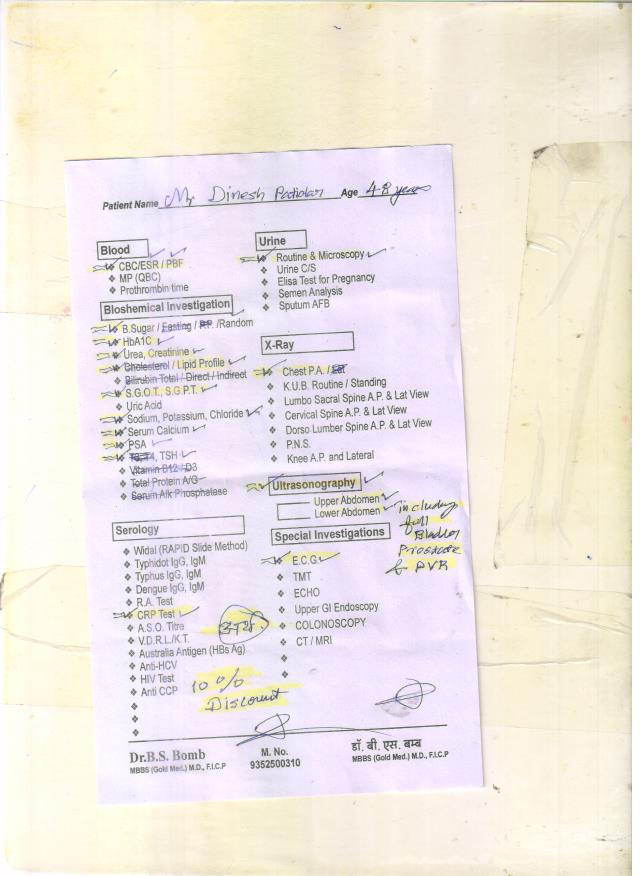 Patient Name Mr Dinesh Age 48 years
Blood
❖ CBC/ESR / PBF
❖ MP (QBC)
❖ Prothrombin time
Bloshemical Investigation
❖ B.Sugar / Easting / P.P. /Random
❖ HbA1C
❖ Urea, Creatinine
❖ Cholesterol / Lipid Profile
❖ Bilirubin Total / Direct / Indirect
❖ S.G.O.T., S.G.P.T.
❖ Uric Acid
❖ Sodium, Potassium, Chloride
❖ Serum Calcium
❖ PSA
❖ TSH
❖ Vitamin B12 / D3
❖ Total Protein A/G
❖ Serum Alk Phosphatase
Serology
❖ Widal (RAPID Slide Method)
❖ Typhidot IgG, IgM
❖ Typhus IgG, IgM
❖ Dengue IgG, IgM
❖ R.A. Test
❖ CRP Test
❖ A.S.O. Titre
❖ V.D.R.L./K.T.
❖ Australia Antigen (HBs Ag)
❖ Anti-HCV
❖ HIV Test
❖ Anti CCP
10%
Discount
Urine
❖ Routine & Microscopy
❖ Urine C/S
❖ Elisa Test for Pregnancy
❖ Semen Analysis
❖ Sputum AFB
X-Ray
❖ Chest P.A. /
❖ K.U.B. Routine / Standing
❖ Lumbo Sacral Spine A.P. & Lat View
❖ Cervical Spine A.P. & Lat View
❖ Dorso Lumber Spine A.P. & Lat View
❖ P.N.S.
❖ Knee A.P. and Lateral
Ultrasonography
Upper Abdomen
Lower Abdomen
including
full
Bladder
Prostate
& PVR
Special Investigations
❖ E.C.G.
❖ TMT
❖ ECHO
❖ Upper GI Endoscopy
❖ COLONOSCOPY
❖ CT / MRI
Dr.B.S. Bomb
MBBS (Gold Med.) M.D., F.I.C.P
M. No.
9352500310
डॉ. बी. एस. बम्ब
MBBS (Gold Med.) M.D., F.I.C.P